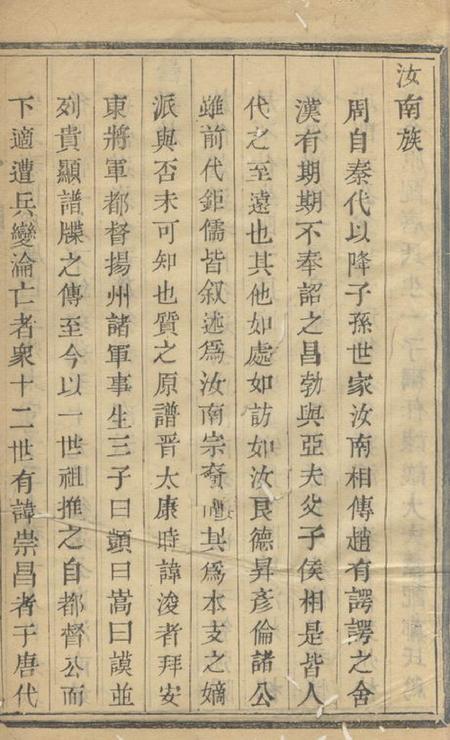 汝南族
周自秦代以降子孫世家汝南相傳趙有諤諤之舍
漢有期期不奉詔之昌勃與亞夫父子侯相是皆人
代之至遠也其他如處如訪如汝艮德昇彥倫諸公
雖前代鉅儒皆叙述爲汝南宗裔其爲本支之嫡
派與否未可知也質之原譜晋太康時諱浚者拜安
東將軍都督揚州諸軍事生三子曰顗曰嵩曰謨並
列貴顯譜牒之傳至今以一世祖推之自都督公而
下適遭兵變淪亡者衆十二世有諱崇昌者于唐代